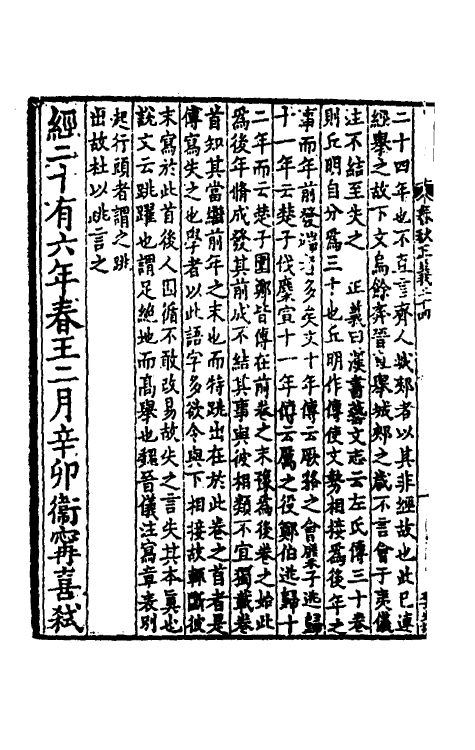 春秋正義二十四
二十四年也不直言齊人城郟者以其非經故也此已連
經舉之故下文烏餘奔晉直舉城郟之歲不言會于夷儀
注不結至失之 正義曰漢書藝文志云左氏傳三十卷
則丘明自分爲三十也丘明作傳使文勢相接爲後年之
事而年前發端者多矣文十年傳云厥貉之會麇子逃歸
十一年云楚子伐麇宣十一年傳云厲之役鄭伯逃歸十
二年而云楚子圍鄭皆傳在前卷之末豫爲後卷之始此
爲後年脩成發其前成不結其事與彼相類不宜獨載卷
首知其當繼前年之末也而特跳出在於此卷之首者是
傳寫失之也學者以此語字多欲令與下相接故輒斷彼
末寫於此首後人因循不敢改易故失之言失其本真也
說文云跳躍也謂足絕地而高舉也魏晉儀注寫章表別
起行頭者謂之跳
出故杜以跳言之
經二十有六年春王二月辛卯衞甯喜弒